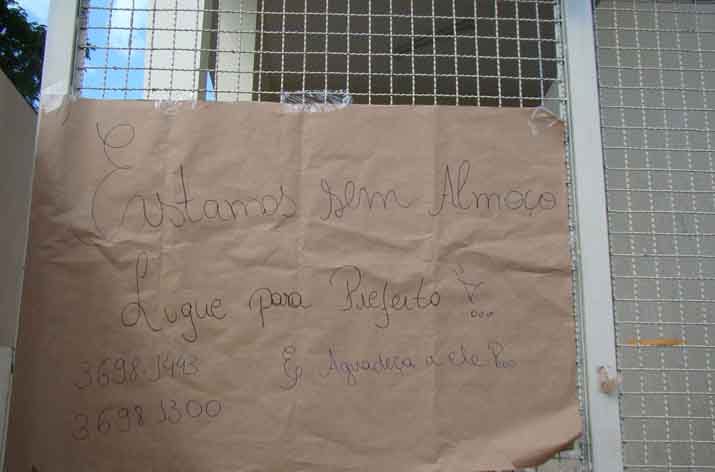 Estamos sem Almoço
Ligue para Prefeito !...
3698.1493 E Agradeça a ele
3698 1300